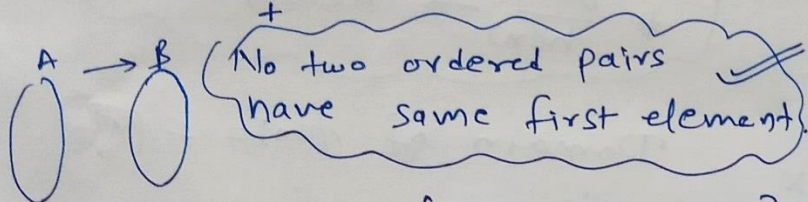 +
A → B (No two ordered pairs
have same first element)